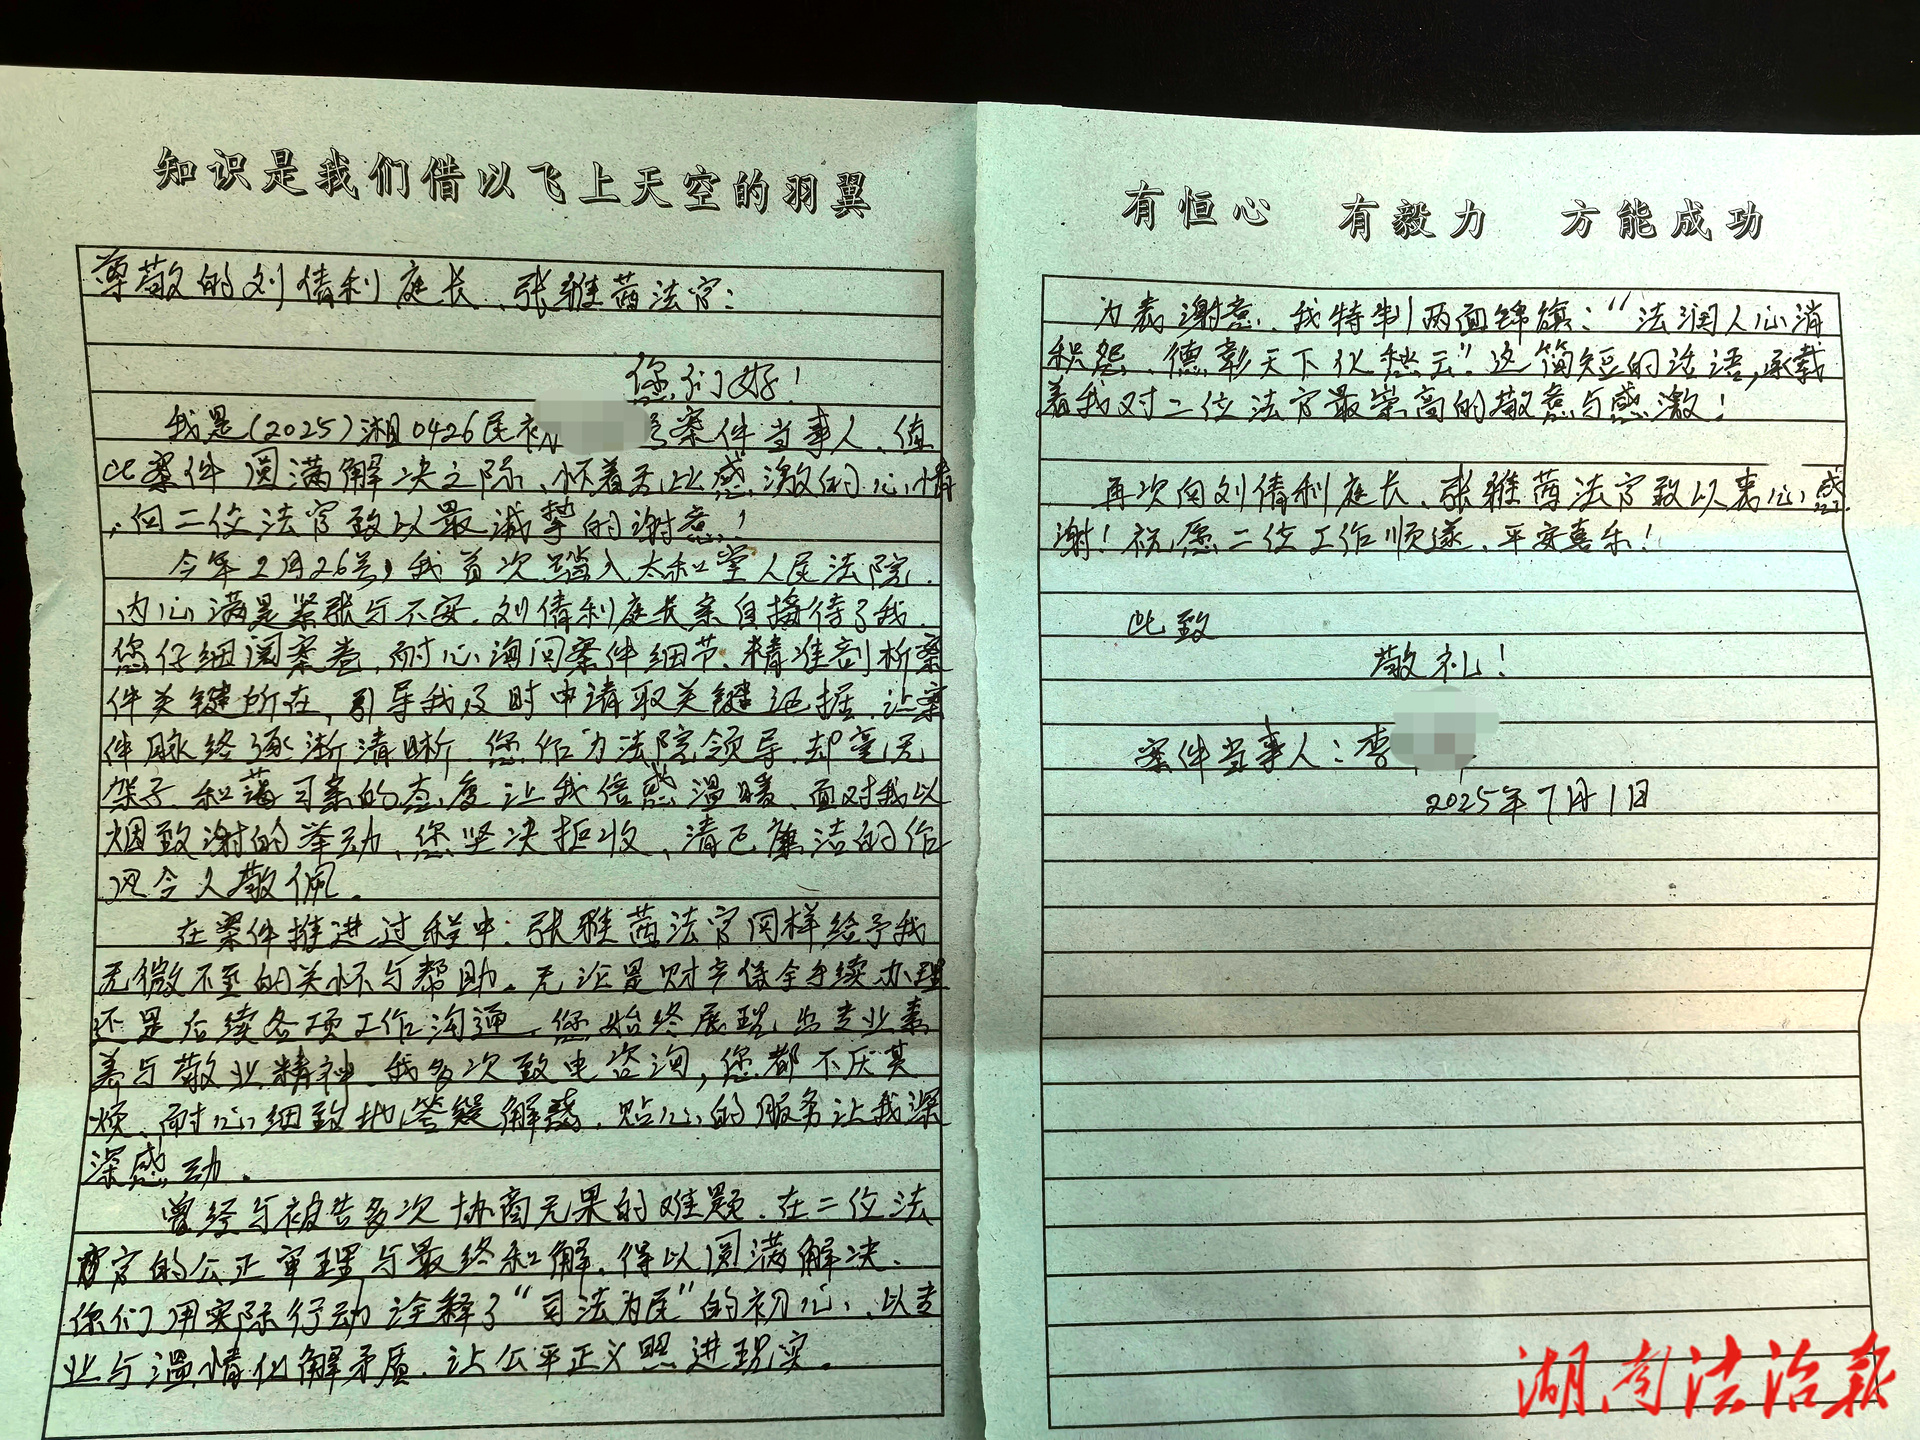 知识是我们借以飞上天空的羽翼
尊敬的刘倩利庭长、张雅茜法官：
您们好！
我是(2025)湘0426民初 号案件当事人、值
此案件圆满解决之际、怀着无比感激的心情
，向二位法官致以最诚挚的谢意！
今年2月26号，我首次踏入太和堂人民法院、
内心满是紧张与不安、刘倩利庭长亲自接待了我、
您仔细阅案卷，耐心询问案件细节、精准剖析案
件关键所在，引导我及时申请取关键证据、让案
件脉络逐渐清晰、您作为法院领导、却毫无
架子、和蔼可亲的态度让我倍感温暖、面对我以
烟致谢的举动、您坚决拒收、清正廉洁的作
风令人敬佩。
在案件推进过程中：张雅茜法官同样给予我
无微不至的关怀与帮助。无论是财产保全手续办理
还是后续各项工作沟通、您始终展现出专业素
养与敬业精神、我多次致电咨询，您都不厌其
烦、耐心细致地答疑解惑、贴心的服务让我深
深感动。
曾经与被告多次协商无果的难题、在二位法
官的公正审理与最终和解、得以圆满解决、
你们用实际行动诠释了“司法为民”的初心、以专
业与温情化解矛盾、让公平正义照进现实。
有恒心 有毅力 方能成功
为表谢意、我特制两面锦旗：“法润人心消
积怨、德彰天下化愁云”这简短的话语，承载
着我对二位法官最崇高的敬意与感激！
再次向刘倩利庭长、张雅茜法官致以衷心感
谢！祝愿二位工作顺遂、平安喜乐！
此致
敬礼！
案件当事人：李
2025年7月1日
湖南法治报